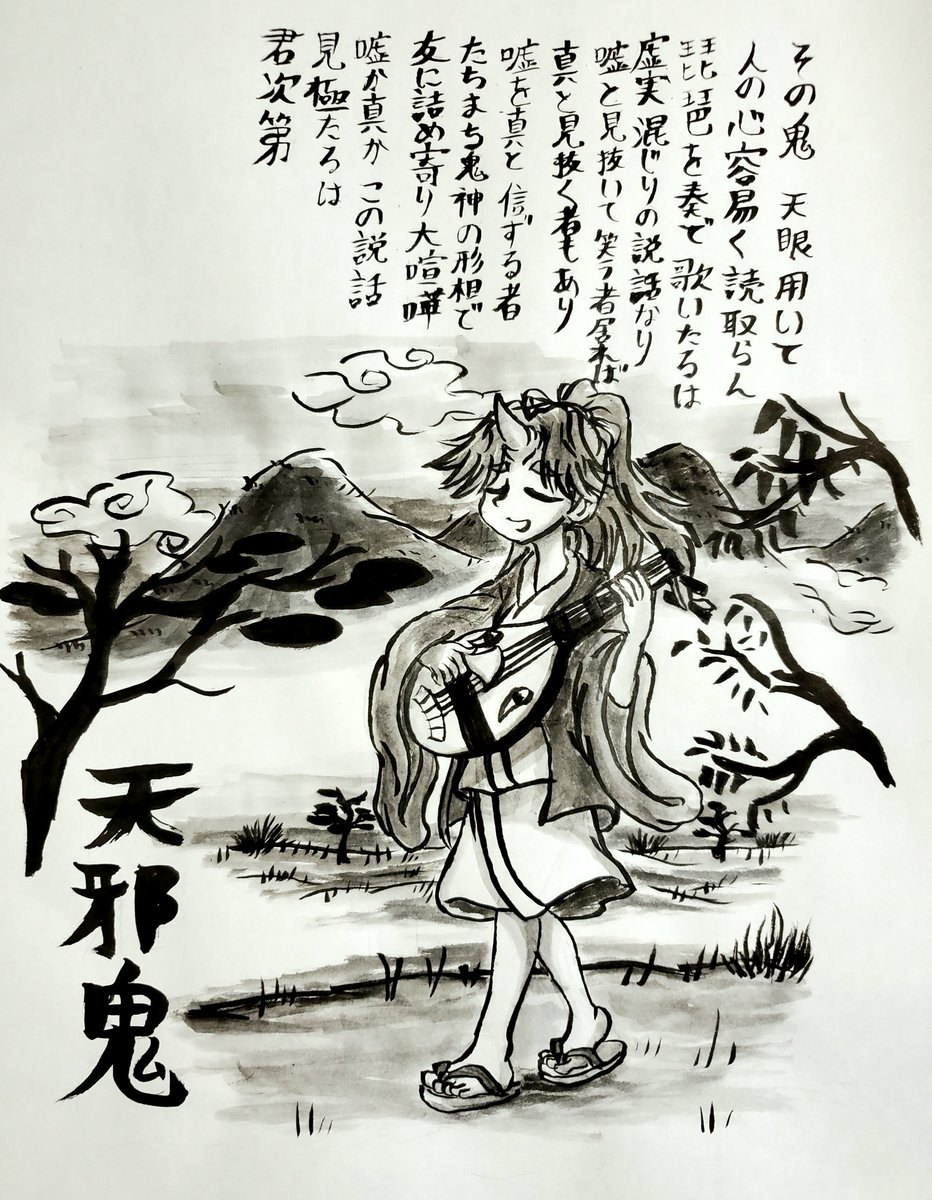 その鬼 天眼用いて
人の心容易く読取らん
琵琶を奏で歌いたるは
虚実混じりの説話なり
嘘と見抜いて笑う者居れば
真と見抜く者もあり
嘘を真と信ずる者
たちまち鬼神の形相で
友に詰め寄り大喧嘩
嘘か真か この説話
見極たるは
君次第
天邪鬼